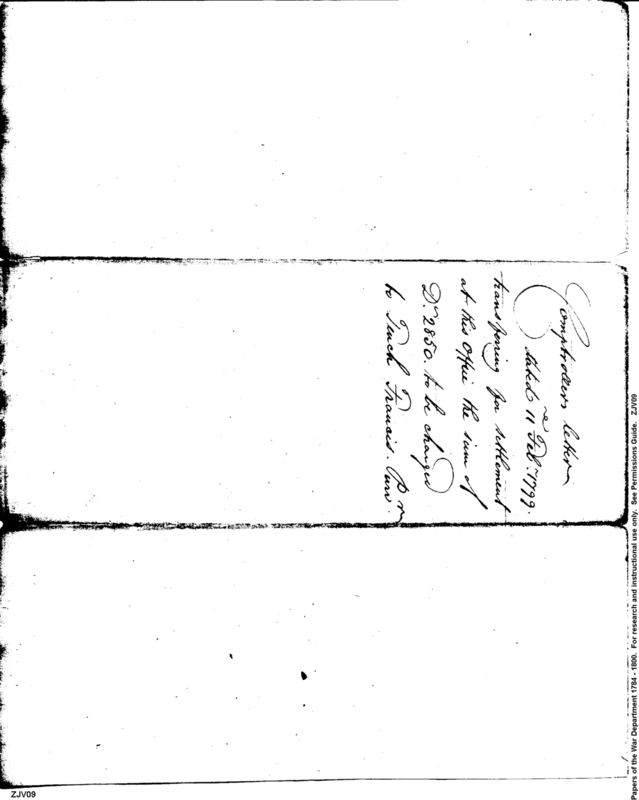 Comptrollers letter
dated 11 Feby. 1799.
transferring for settlement
at this Office the sum of
Ds. 2850. to be charged
to Tench Francis. Purvr.
Papers of the War Department 1784 - 1800. For research and instructional use only. See Permissions Guide. ZJV09
ZJV09